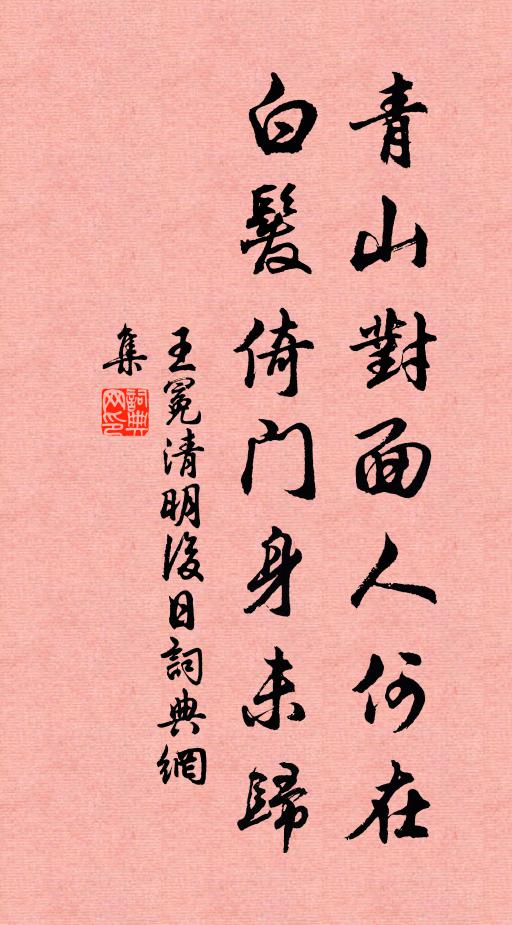 青山對面人何在
白髮倚門身未歸
王冕清明後日詞典網
集
詞典網印